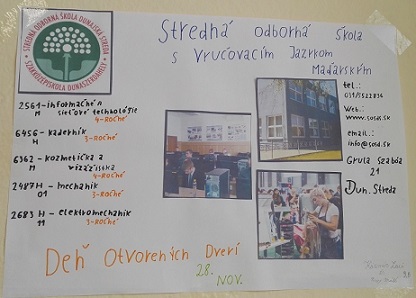 STREDNÁ ODBORNÁ ŠKOLA DUNAJSKÁ STREDA
SZAKKÖZÉPISKOLA DUNASZERDAHELY
Stredná odborná škola
s Vyučovacím Jazykom
Maďarským
2561-informačné a
M sieťové technológie
4-ROČNÉ
6456 - kaderník
H 3-ROČNÉ
6362 - kozmetička a
M vizážistka
4-ROČNÉ
2487 H - mechanik
01 3-ROČNÉ
2683 H - elektromechanik
11 3-ROČNÉ
tel.:
Web:
www.sosds.sk
email.:
Gyula Szabóa
21
Dun. Streda
Deň Otvorených Dverí
28.
NOV.